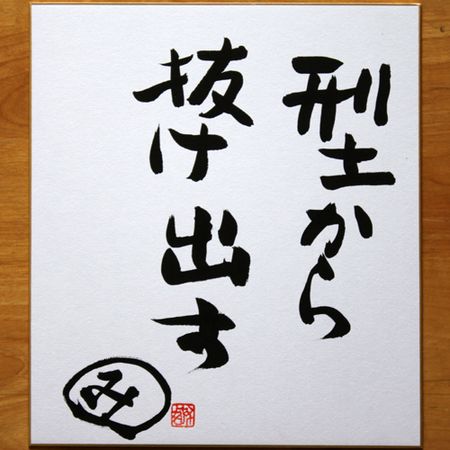 型から
抜け出す
み